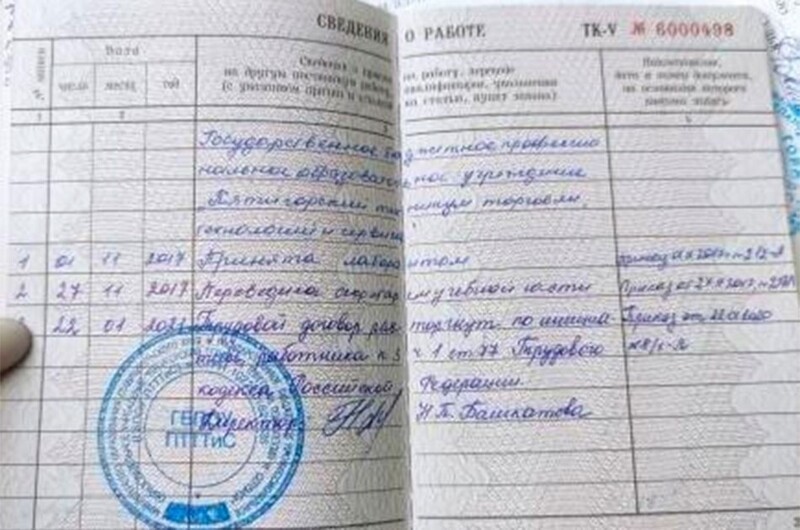 СВЕДЕНИЯ О РАБОТЕ ТК-V № 6000498
Дата
№ записи число месяц год
Сведения о приеме на работу,
на другую постоянную работу, квалификации, увольнении
(с указанием причин и ссылкой на статью, пункт закона)
Наименование,
дата и номер документа,
на основании которого
внесена запись
1 2 3 4
Государственное бюджетное профессио
нальное образовательное учреждение
"Пятигорский техникум торговли,
технологий и сервиса"
1 01 11 2017 Принята лаборантом
2 27 11 2017 Переведена секретарем учебной части
22 01 Трудовой договор расторгнут по инициа Приказ от
тиве работника п.3 ч 1 ст 77 Трудового
кодекса Российской Федерации.
Директор Н.П. Башкатова
ГБПОУ
ПТТТиС